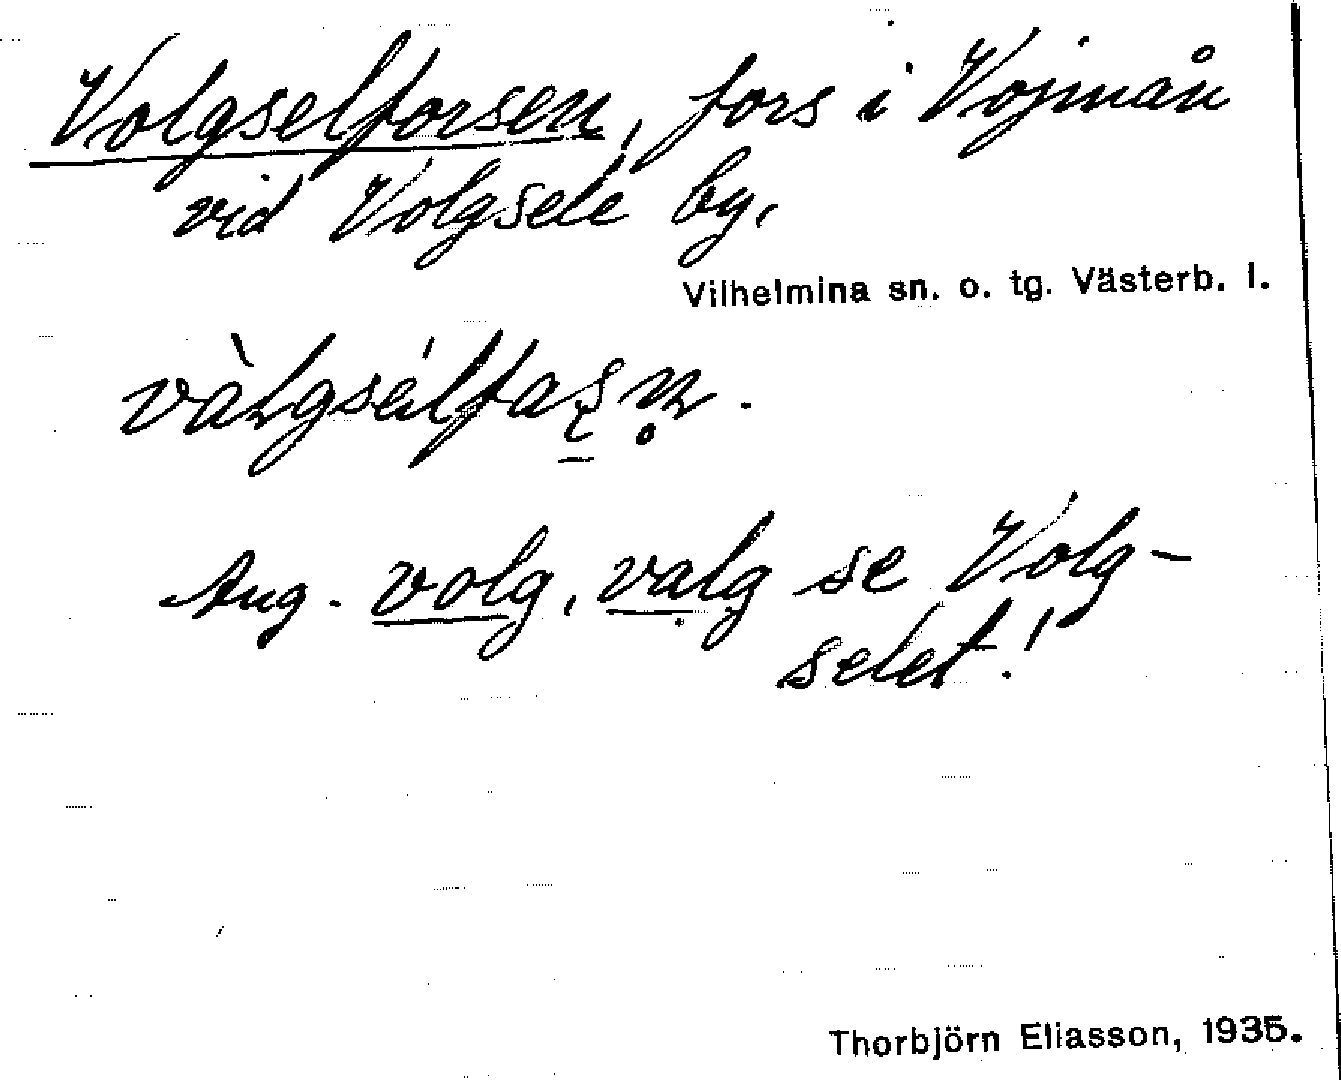 Volgselforsen, fors i Vojmån
vid Volgsele by,
Vilhelmina sn. o. tg. Västerb. l.
Ang. volg, valg se Volg-
selet!
Thorbjörn Eliasson, 1935.